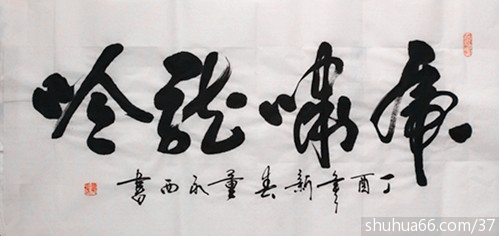 虎嘯龍吟
丁酉年新春董永西書
shuhua66.com/37